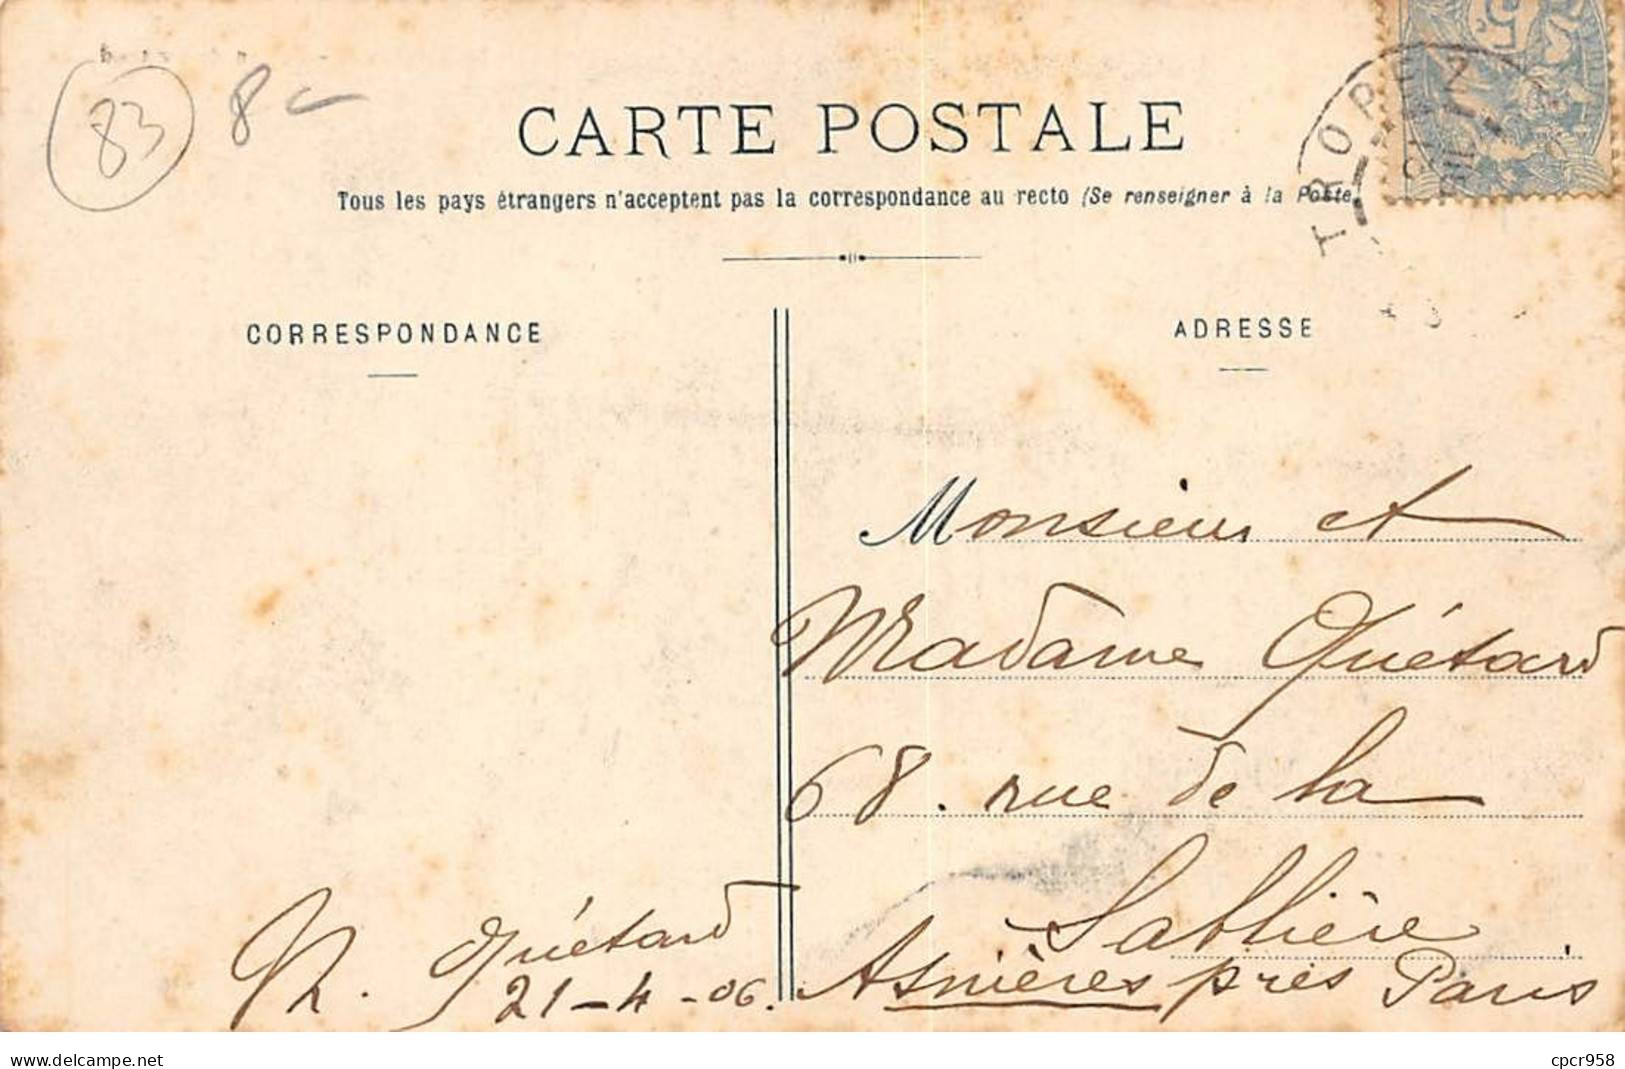 83 8
CARTE POSTALE
Tous les pays étrangers n'acceptent pas la correspondance au recto (Se renseigner à la Poste
TROPEZ
CORRESPONDANCE
ADRESSE
Monsieur et
Madame Quétard
68. rue de la
Sablière
Asnières près Paris
Quétard
21-4-06.
www.delcampe.net
cpcr958